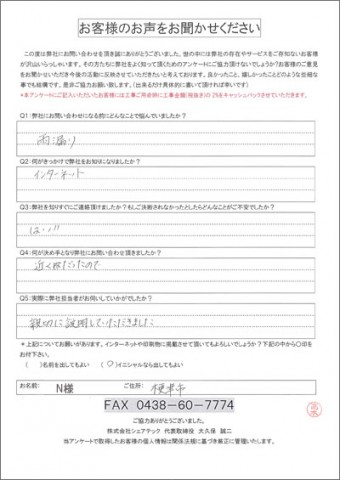 お客様のお声をお聞かせください
この度は弊社にお問い合わせを頂き誠にありがとうございました。世の中には弊社の存在やサービスをご存知ないお客様
が沢山いらっしゃいます。その方たちに弊社をよく知って頂くためのアンケートにご協力頂けないでしょうか?お客様のご意見
をお聞かせいただき今後の活動に反映させていただきたいと考えております。良かったこと、嬉しかったことどのような些細な
事でも結構です。是非ご協力お願い致します。(出来るだけ具体的に書いて頂ければ幸いです)
*本アンケートにご記入いただいたお客様には工事ご用命時に工事金額(税抜き)の2%をキャッシュバックさせていただきます。
Q1:弊社にお問い合わせになる前にどんなことで悩んでいましたか?
雨漏り
Q2:何がきっかけで弊社をお知りになりましたか?
インターネット
Q3:弊社を知りすぐにご連絡頂けましたか?もしご決断されなかったとしたらどんなことがご不安でしたか?
はい
Q4:何が決め手となり弊社にお問い合わせ頂きましたか?
近くだったので
Q5:実際に弊社担当者がお伺いしていかがでしたか?
親切に説明していただきました
* 上記についてお願いがあります。インターネットや印刷物に掲載させて頂いてもよろしいでしょうか?下記の中から〇印を
お付下さい。
( )名前を出してもよい (〇)イニシャルなら出してもよい
お名前: N様 ご住所: 木更津市
FAX 0438-60-7774
ご協力ありがとうございました。
株式会社シェアテック 代表取締役 大久保 誠二
当アンケートで取得したお客様の個人情報は関係法規に基づき厳正に管理いたします。